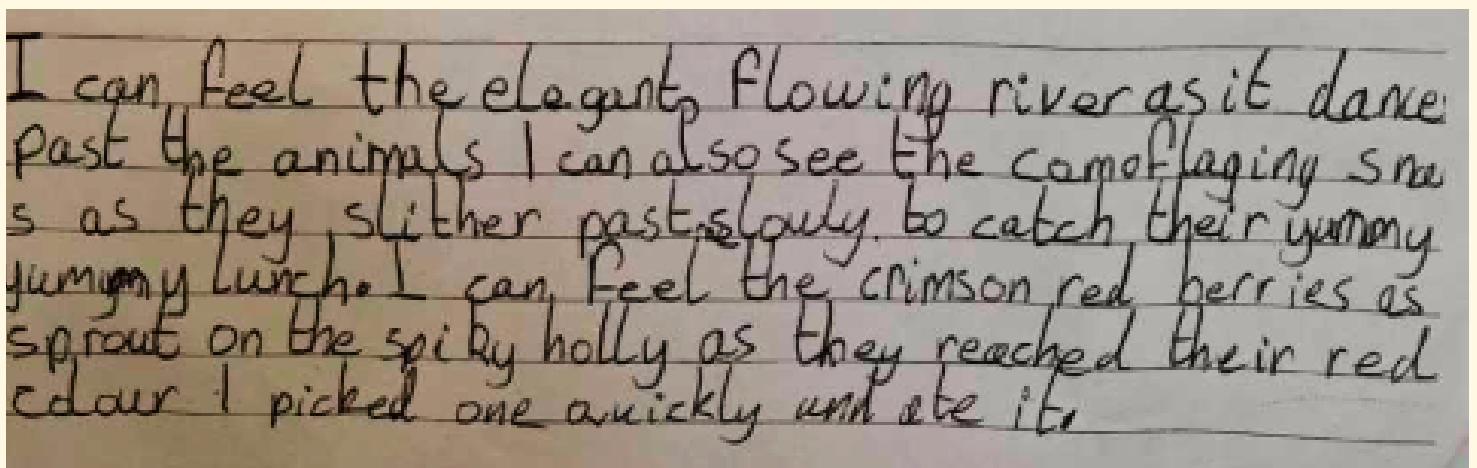 I can feel the elegant, flowing river as it dance
past the animals I can also see the camoflaging sna
s as they slither past slowly to catch their yummy
yummy lunch. I can feel the crimson red berries as
sprout on the spiky holly as they reached their red
colour I picked one quickly and ate it.